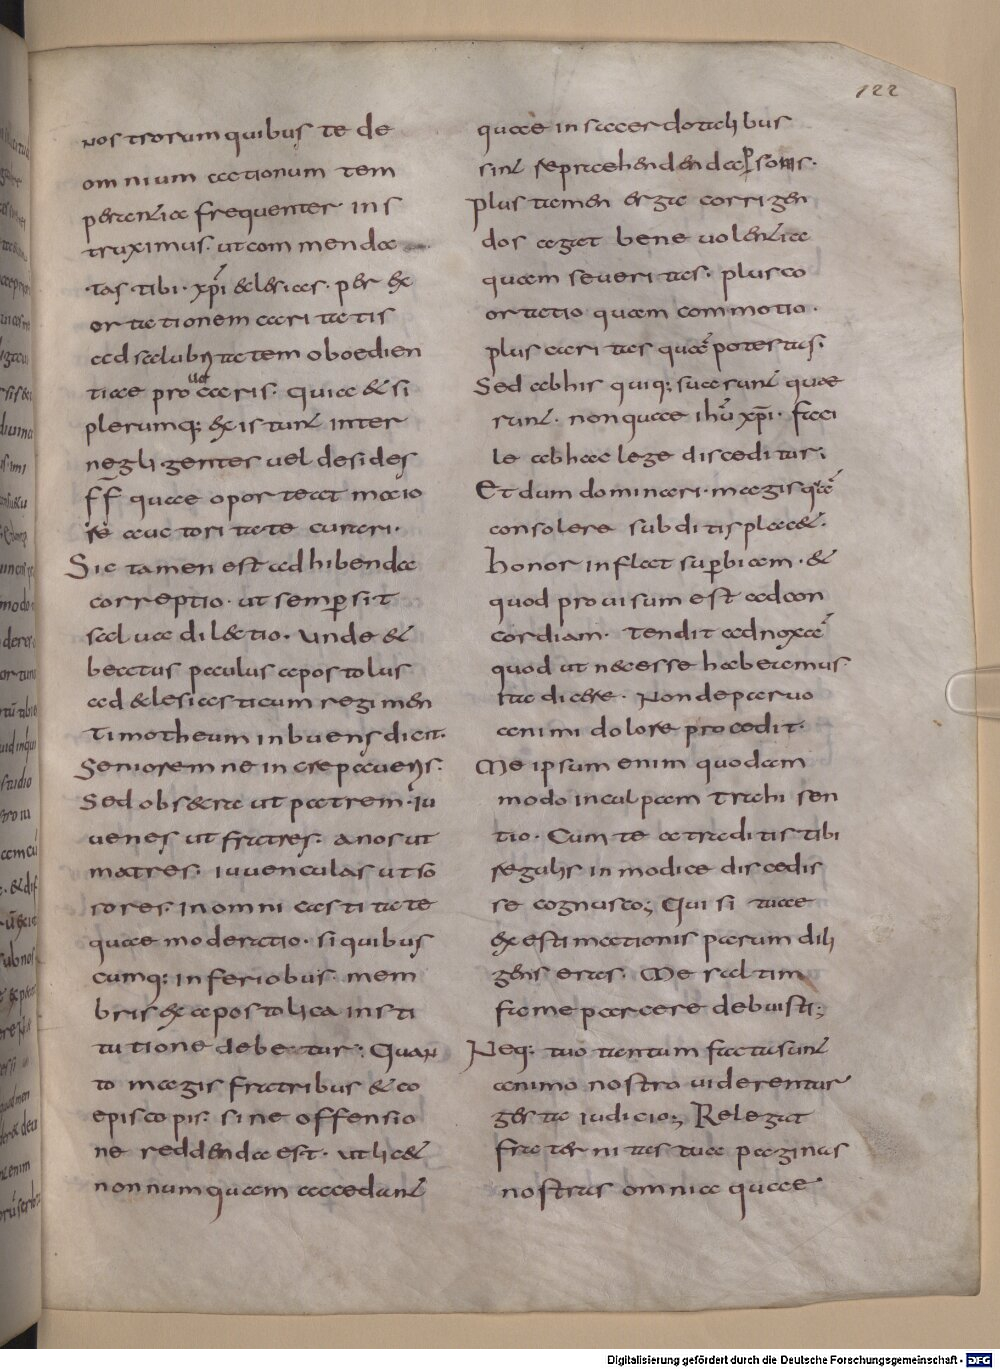 122
nostrorum quibus te de
omnium actionum tem
perantia frequenter ins
truximus. ut commenda
tas tibi. xp̄i ecclesias. per ex
ortationem caritatis
ad salubritatem oboedien
tiae provocaris. quia & si
plerumq; existunt inter
neglegentes vel desides
ff quae oporteat maio
re auctoritate curari.
Sic tamen est adhibenda
correptio. ut semp̱ sit
salva dilectio. unde &
beatus paulus apostolus
ad eclesiasticum regimen
timotheum inbuens dicit.
Seniorem ne increpaveris.
Sed obsecra ut patrem. iu
venes ut fratres. anos ut
matres. iuvenculas ut so
rores. in omni castitate
quae moderatio. si quibus
cumq; inferiobus mem
bris ex apostolica insti
tutione debetur; Quan
to magis fratribus & co
episcopis. sine offensio
ne reddenda est. ut lic&
non numquam accedant
quae in sacerdotalibus
sint repraehendenda p̱sonis.
plus tamen erga corrigen
dos agat benevolentia
quam severitas. plus co
ortatio quam commotio.
plus caritas quā potestas.
Sed ab his qui q; sua sunt quae
runt. non quae ihū xp̄i. faci
le ab hac lege disceditur;
Et dum dominari. magis quā
consolere subditis plac&.
honor inflat sup̱biam. &
quod provisum est ad con
cordiam. tendit ad noxā
quod ut necesse habeamus
ita dicere. Non de parvo
animi dolore procedit.
Me ipsum enim quodam
modo inculpam trahi sen
tio. Cum te a traditis tibi
regulis in modice discedis
se cognusco; Qui si tuae
exestimationis parum dili
gens eras. Me saltim
fame parcere debuisti;
Neq; tuo tantum facta sunt
animo nostro viderentur
gesta iudicio; Relegat
fraternitas tua paginas
nostras omnia quae
Digitalisierung gefördert durch die Deutsche Forschungsgemeinschaft - DFG